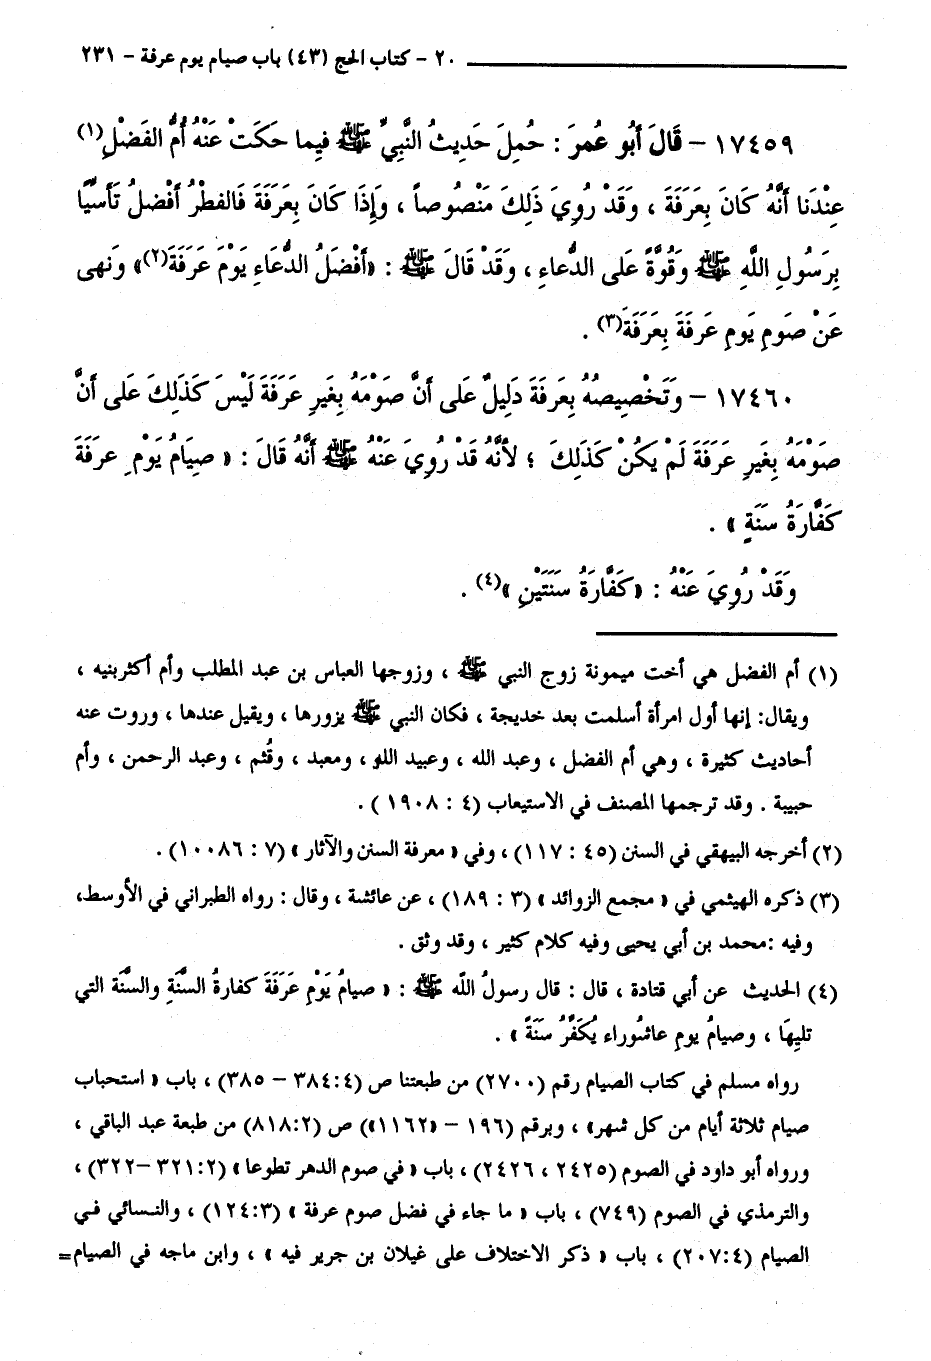 ٢٠ - كتاب الحج (٤٣) باب صيام يوم عرفة - ٢٣١
١٧٤٥٩ - قَالَ أَبُو عُمرَ : حُمِلَ حَدِيثُ النَّبِيِّ ﷺ فِيما حَكَتْ عَنْهُ أُمُّ الفَضْلِ(١)
عِنْدَنا أَنَّهُ كَانَ بِعَرَفَةَ ، وَقَدْ رُوِيَ ذَلِكَ مَنْصُوصاً ، وَإِذَا كَانَ بِعَرَفَةَ فَالفطْرُ أَفْضلُ تَأَسِّيًا
بِرَسُولِ اللَّهِ ﷺ وَقُوَّةً عَلى الدُّعاءِ ، وَقَدْ قَالَ ﷺ : «أَفْضَلُ الدُّعَاءِ يَوْمَ عَرَفَةَ(٢)» وَنَهى
عَنْ صَومِ يَومِ عَرفَةَ بِعَرَفَةَ(٣) .
١٧٤٦٠ - وَتَخْصِيصُهُ بِعَرفَةَ دَلِيلٌ عَلى أَنَّ صَوْمَهُ بِغَيرِ عَرَفَةَ لَيْسَ كَذَلِكَ عَلى أَنَّ
صَوْمَهُ بِغَيرِ عَرَفَةَ لَمْ يَكُنْ كَذَلِكَ ؛ لأَنَّهُ قَدْ رُوِيَ عَنْهُ ﷺ أَنَّهُ قَالَ : « صِيَامُ يَوْمِ عرفَةَ
كَفَّارَةُ سَنَةٍ » .
وَقَدْ رُوِيَ عَنْهُ : «كَفَّارَةُ سَنَتَيْنِ »(٤) .
(١) أم الفضل هي أخت ميمونة زوج النبي ﷺ ، وزوجها العباس بن عبد المطلب وأم أكثربنيه ،
ويقال: إنها أول امرأة أسلمت بعد خديجة ، فكان النبي ﷺ يزورها ، ويقيل عندها ، وروت عنه
أحاديث كثيرة ، وهي أم الفضل ، وعبد الله ، وعبيد اللهِ ، ومعبد ، وقُثم ، وعبد الرحمن ، وأم
حبيبة . وقد ترجمها المصنف في الاستيعاب (٤ : ١٩٠٨ ) .
(٢) أخرجه البيهقي في السنن (٤٥ : ١١٧) ، وفي « معرفة السنن والآثار » (٧ : ١٠٠٨٦) .
(٣) ذكره الهيثمي في « مجمع الزوائد » (٣ : ١٨٩) ، عن عائشة ، وقال : رواه الطبراني في الأوسط،
وفيه :محمد بن أبي يحيى وفيه كلام كثير ، وقد وثق .
(٤) الحديث عن أبي قتادة ، قال : قال رسولُ اللَّه ﷺ : « صيامُ يَوْمِ عَرَفَةَ كفارةُ السَّنَةِ والسَّنَة التي
تليِهَا ، وصيامُ يومِ عاشُوراء يُكَفِّرُ سَنَةً » .
رواه مسلم في كتاب الصيام رقم (٢٧٠٠) من طبعتنا ص (٣٨٤:٤ - ٣٨٥) ، باب « استحباب
صيام ثلاثة أيام من كل شهر» ، وبرقم (١٩٦ - «١١٦٢») ص (٨١٨:٢) من طبعة عبد الباقي ،
ورواه أبو داود في الصوم (٢٤٢٥ ، ٢٤٢٦) ، باب « في صوم الدهر تطوعا » (٣٢١:٢ -٣٢٢) ،
والترمذي في الصوم (٧٤٩) ، باب « ما جاء في فضل صوم عرفة » (١٢٤:٣) ، والنسائي في
الصيام (٢٠٧:٤) ، باب « ذكر الاختلاف على غيلان بن جرير فيه » ، وابن ماجه في الصيام=